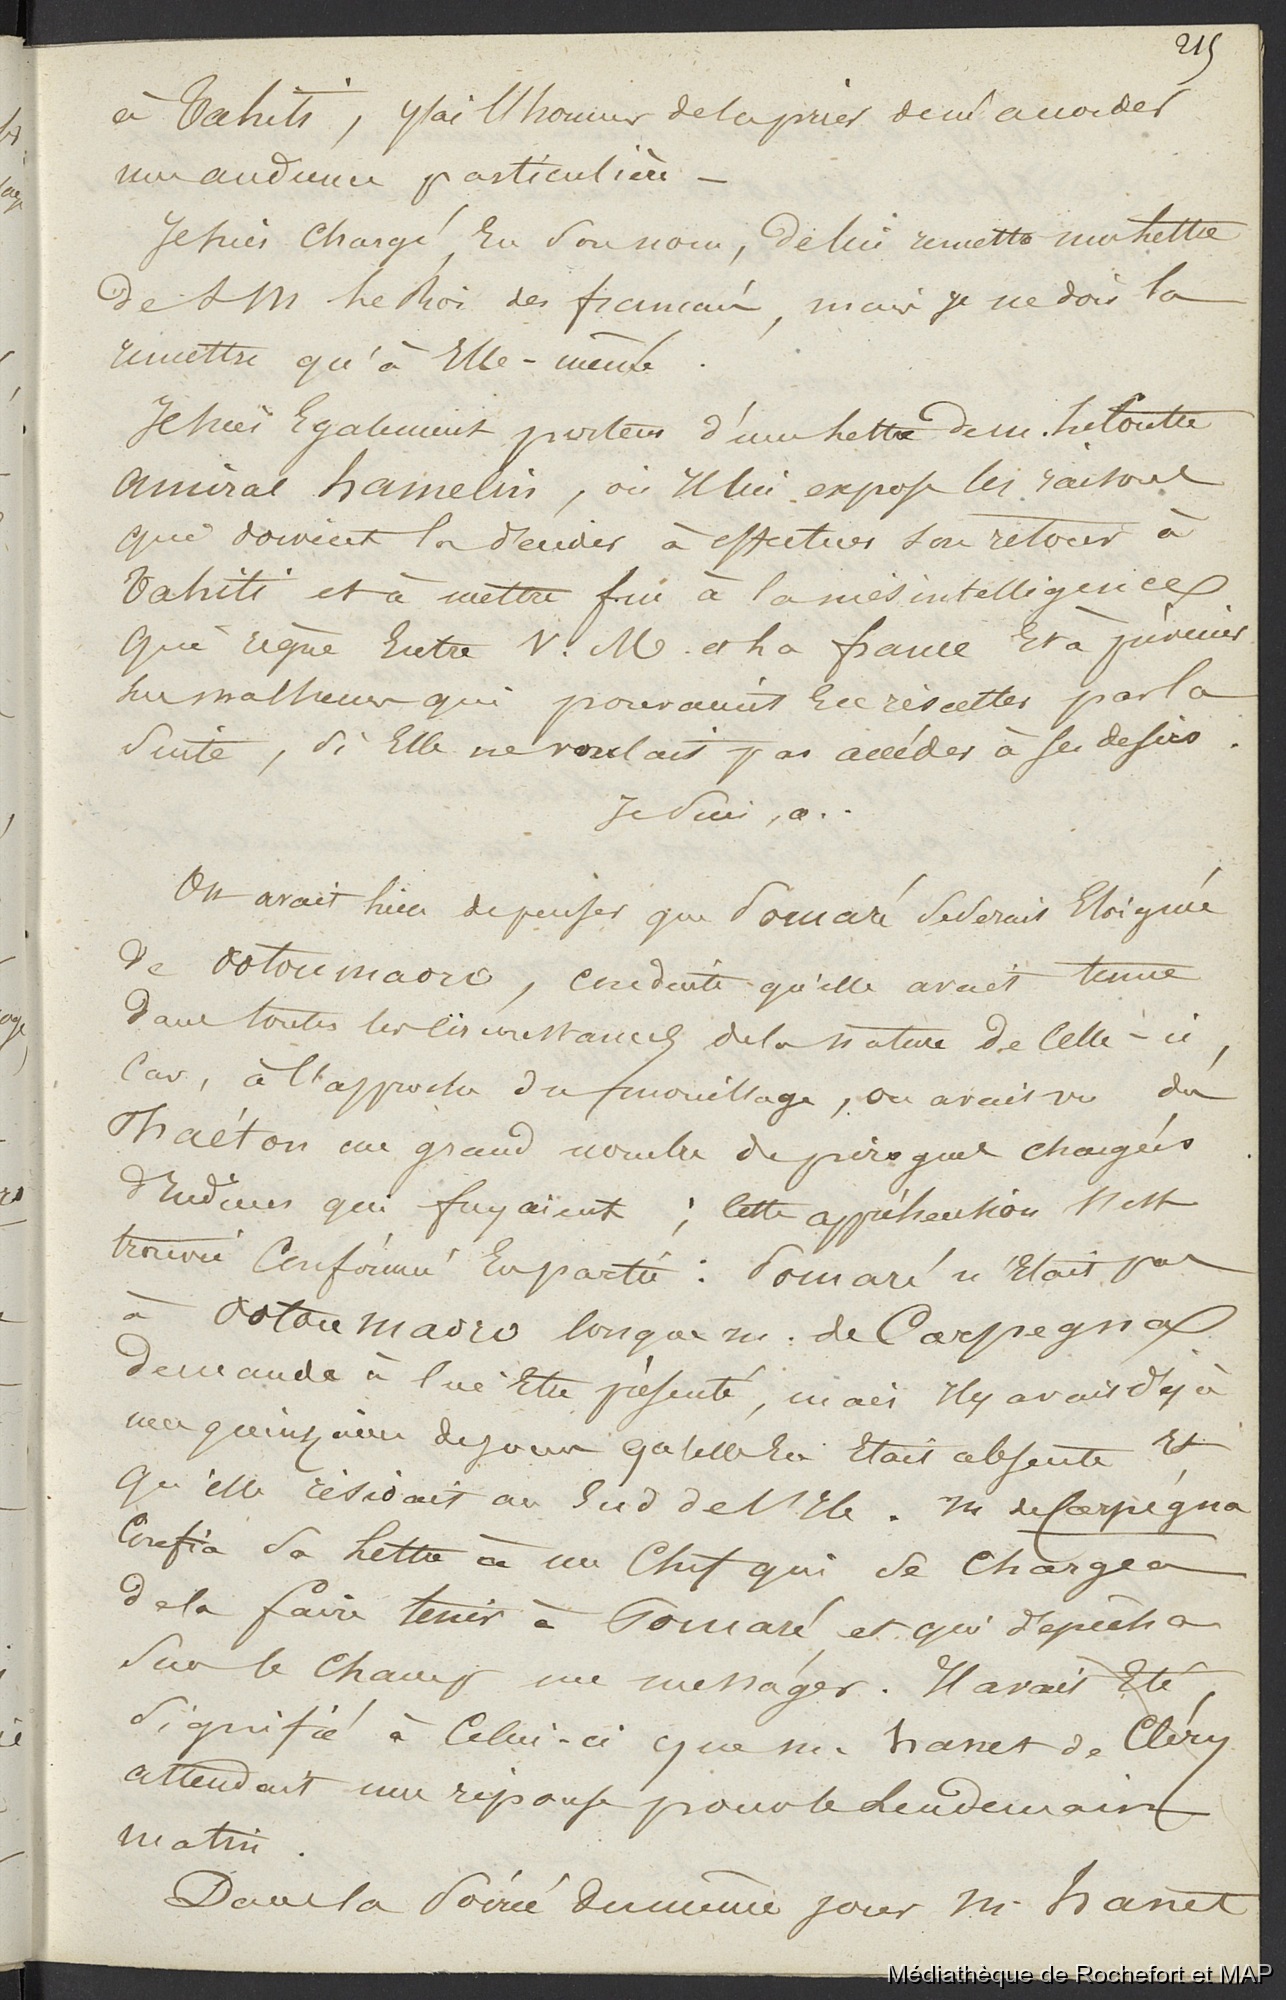 215
à Tahiti, j'ai l'honneur de la prier de m'accorder
une audience particulière —
Je suis chargé, En son nom, de lui remettre une lettre
De S M Le Roi des français, mais je ne dois la
remettre qu'à Elle-même.
Je suis Egalement porteur d'une lettre de m. le Contre
amiral hamelin, où Il lui expose les raisons
qui doivent la décider à effectuer son retour à
Tahiti et à mettre fin à la mésintelligence
qui règne Entre V. M. et La france Et à prévenir
les malheurs qui pourraient En résulter par la
Suite, Si Elle ne voulait pas accéder à ses desirs.
Je Suis, a..
On avait lieu de penser que Pomaré se serait Eloignée
de Ootoumaoro, conduite qu'elle avait tenue
dans toutes les circonstances de la nature de Celle-ci,
Car, à l'approche du mouillage, on avait vu du
Phaéton un grand nombre de pirogues chargées
d'Indiens qui fuyaient ; Cette appréhension s'est
trouvé Confirmé En partie : Pomaré n'Etait pas
à Ootoumaoro lorsque m. de Carpegna
demanda à lui Etre présenté, mais Il y avait déjà
une quinzaine de jours qu'elle En Etait absente Et
qu'elle résidait au Sud de l'Ile. M de Carpégna
Confia Sa Lettre à un Chef qui se Chargea
de la faire tenir à Pomaré, et qui dépêcha
Sur le champ un messager. Il avait Eté
Signifié à Celui-ci que m. hanet de Cléry
attendait une réponse pour le Lendemain
matin.
Dans la Soirée du même jour M. hanet
Médiathèque de Rochefort et MAP